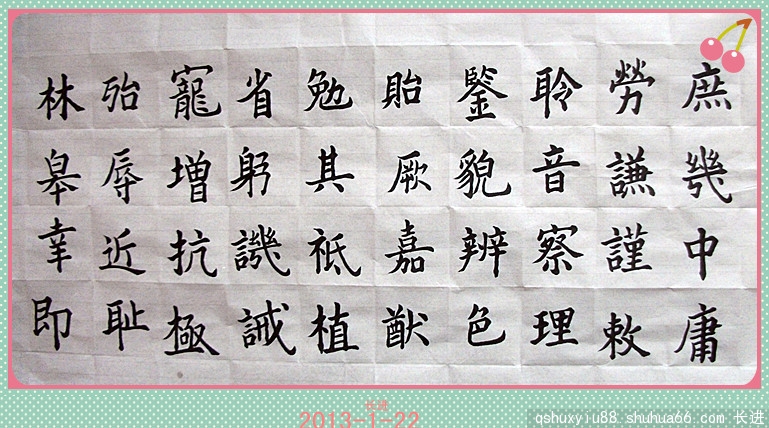 庶幾中庸
勞謙謹敕
聆音察理
鑒貌辨色
貽厥嘉猷
勉其祗植
省躬譏誡
寵增抗極
殆辱近耻
林皋幸即
长进
2013-1-22
qshuxyiu88.shuhua66.com 长进